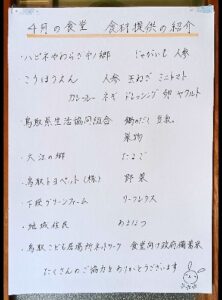 4月の食堂 食材提供の紹介
・ハピネやわらぎの郷 じゃがいも 人参
・こうほうえん 人参 玉ねぎ ミニトマト
カレールー ネギ ドレッシング 卵 ヤクルト
・鳥取県生活協同組合 豆乳
菓物
・大江の郷 たまご
・鳥取トヨペット(株) 野菜
・グリーンファーム リーフレタス
・地域住民
・鳥取こども居場所ネットワーク 食堂向け政府備蓄米
たくさんのご協力ありがとうございます